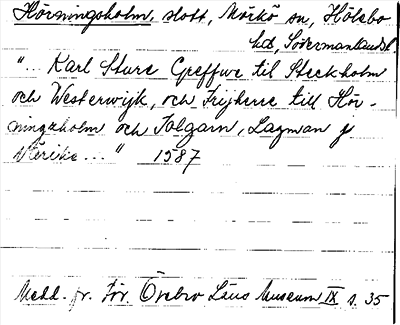 Hörningsholm, slott, Mörkö sn, Hölebo
hd, Södermanlands l.
"... Karl Sture Greffwe til Steckholm
och Westerwijk, och Frijherre till Hör-
ningzholm och Folgarn, Lagman j
Nerike..." 1587
Medd. fr. För. Örebro Läns Museum IX s. 35